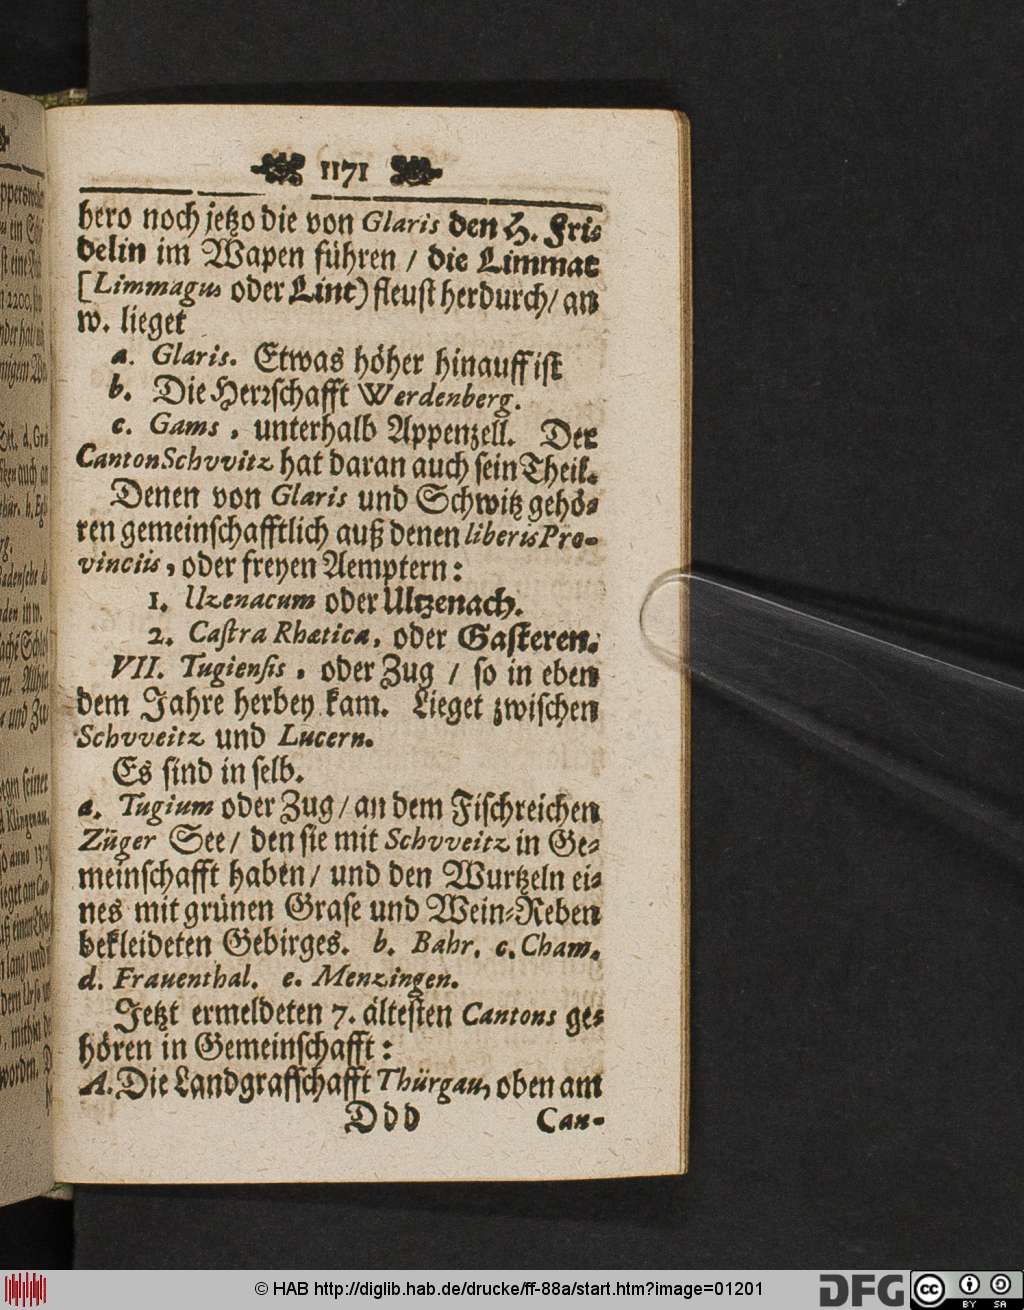 1171
hero noch jetzo die von Glaris den H. Fri-
delin im Wapen führen / die Limmat
[Limmagus oder Lint) fleust herdurch / an
w. lieget
a. Glaris. Etwas höher hinauff ist
b. Die Herrschafft Werdenberg.
c. Gams, unterhalb Appenzell. Der
Canton Schvvitz hat daran auch sein Theil.
Denen von Glaris und Schwitz gehö-
ren gemeinschafftlich auß denen liberis Pro-
vinciis, oder freyen Aemptern:
1. Uzenacum oder Ultzenach.
2. Castra Rhætica, oder Gasteren.
VII. Tugiensis, oder Zug / so in eben
dem Jahre herbey kam. Lieget zwischen
Schvveitz und Lucern.
Es sind in selb.
a. Tugium oder Zug / an dem Fischreichen
Züger See / den sie mit Schvveitz in Ge-
meinschafft haben / und den Wurtzeln ei-
nes mit grünen Grase und Wein-Reben
bekleideten Gebirges. b. Bahr. c. Cham.
d. Frauenthal. e. Menzingen.
Jetzt ermeldeten 7. ältesten Cantons ge-
hören in Gemeinschafft:
A. Die Landgraffschafft Thürgau, oben am
Ddd Can-
© HAB http://diglib.hab.de/drucke/ff-88a/start.htm?image=01201
DFG
cc BY SA